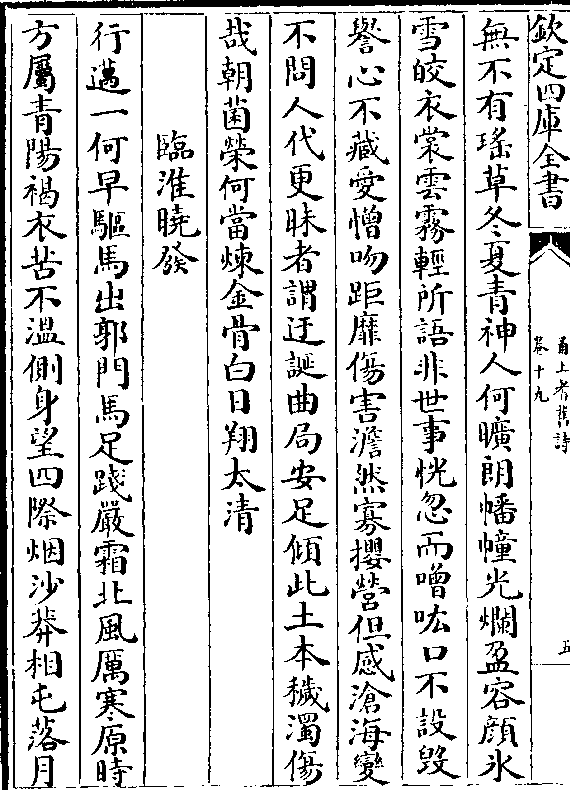 欽定四庫全書
甬上耆舊詩
卷十九
五
無不有瑤草冬夏青神人何曠朗幡幢光爛盈容顔氷
雪皎衣裳雲霧輕所語非世事恍忽而噌吰口不設毁
譽心不藏愛憎吻距靡傷害澹然寡攖營但感滄海變
不問人代更昧者謂迂誕曲局安足傾此土本穢濁傷
哉朝菌榮何當煉金骨白日翔太清
臨淮曉發
行邁一何早驅馬出郭門馬足踐嚴霜北風厲寒原時
方屬青陽褐衣苦不溫側身望四際烟沙莽相屯落月